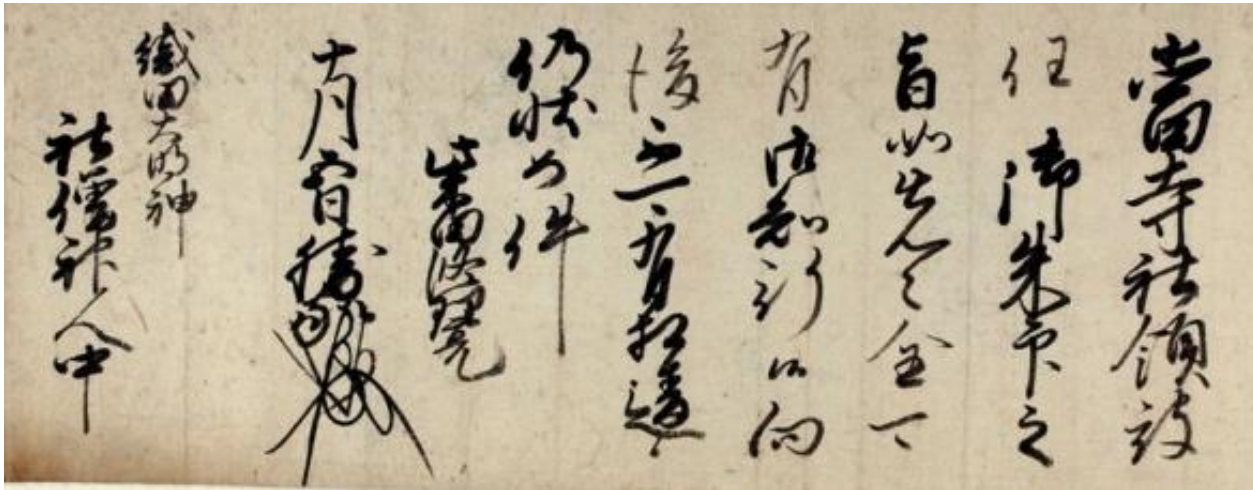 当寺社領諸
任 御朱印之
旨如先々全可
有御知行候向
後不可有相違候
仍状如件
柴田修理亮
十一月五日勝家
織田大明神
社僧神人中